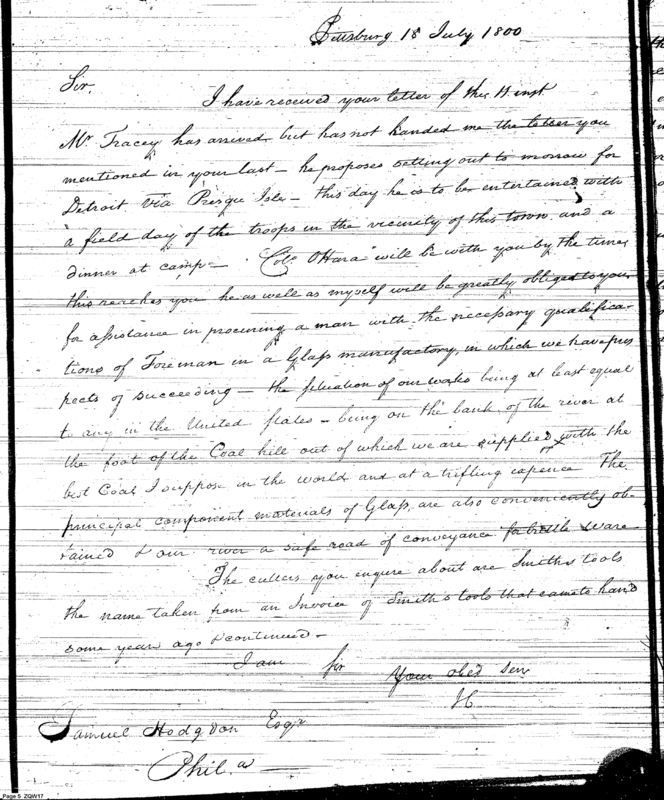 Pittsburg 18 July 1800
Sir,
I have received your letter of the 11 inst
Mr Tracey has arrived but has not handed me the letter you
mentioned in your last - he proposes setting out to morrow for
Detroit via Presque Isle - this day he is to be entertained with
a field day of the troops in the vicinity of this town, and a
dinner at camp - Colo OHara will be with you by the time
this reaches you he as well as myself will be greatly obliged to you
for assistance in procuring a man with the necessary qualifica-
tions of Foreman in a Glass manufactory, in which we have pros
pects of succeeding - the situation of our works being at least equal
to any in the United States - being on the bank of the river at
the foot of the Coal hill out of which we are supplied with the
best Coal I suppose in the world and at a trifling expence The
principal component materials of Glass, are also conveniently ob-
tained & our river a safe road of conveyance for brittle Ware
The cutters you enquire about are Smiths tools
the name taken from an Invoice of Smiths tools that came to hand
some years ago & continued -
I am Sir Your obed Serv
Samuel Hodgdon Esqr
Phil.a
Page 5 ZGW17